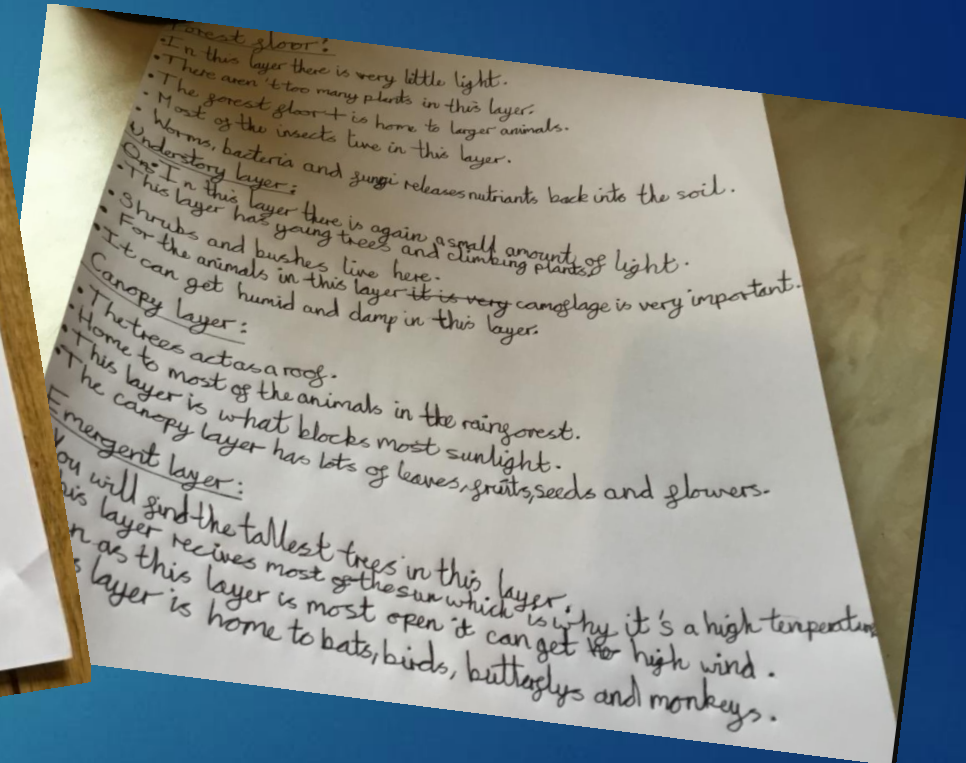 Forest floor:
•In this layer there is very little light.
•There aren't too many plants in this layer.
•The forest floor is home to larger animals.
•Most of the insects live in this layer.
•Worms, bacteria and fungi releases nutriants back into the soil.
Understory layer:
•In this layer there is again a small amount of light.
•This layer has young trees and climbing plants.
•Shrubs and bushes live here.
•For the animals in this layer it is very camoflage is very important.
•It can get humid and damp in this layer.
Canopy layer:
•The trees act as a roof.
•Home to most of the animals in the rainforest.
•This layer is what blocks most sunlight.
•The canopy layer has lots of leaves, fruits, seeds and flowers.
Emergent layer:
You will find the tallest trees in this layer.
his layer recives most of the sun which is why it's a high temperature
n as this layer is most open it can get high wind.
s layer is home to bats, birds, butterflys and monkeys.